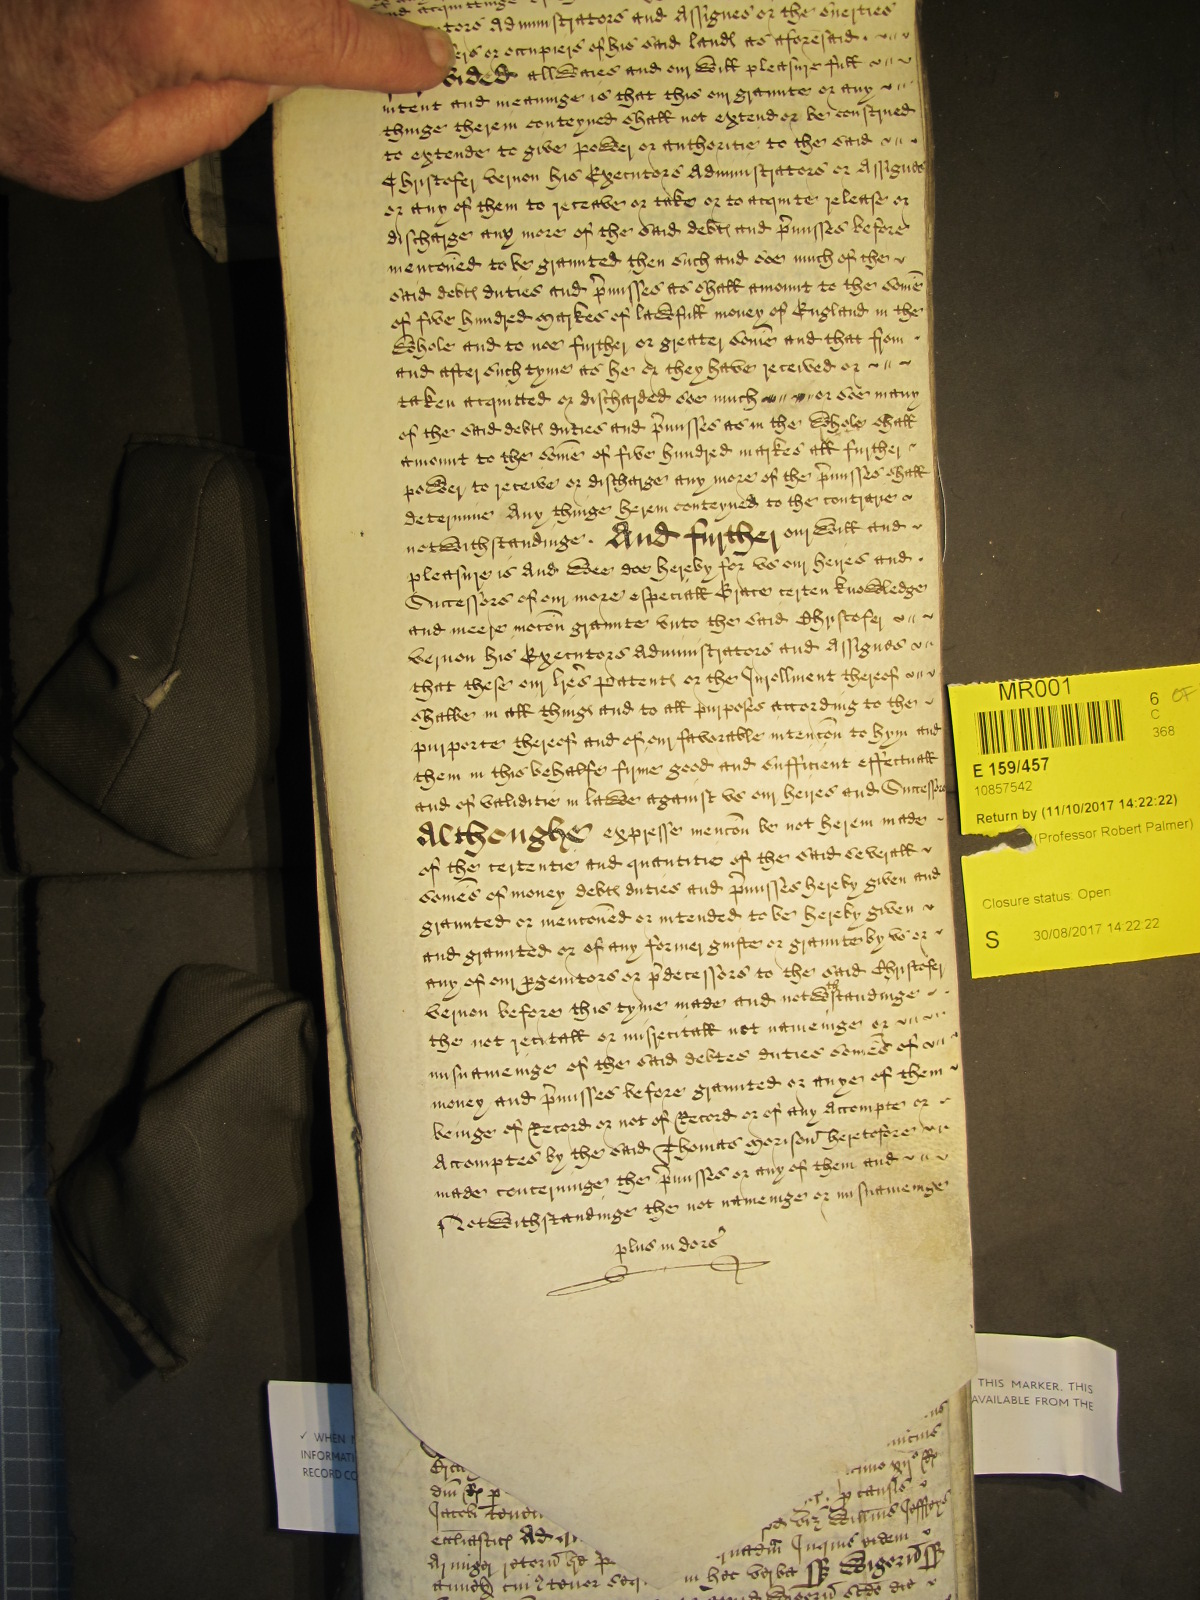 and acquittinge
tors Administrators and Assignes or the suerties
ers or occupiers of his said landes as aforesaid
vided allwaies and our will pleasure full
intent and meaninge is that this our graunte or any
thinge therein conteyned shall not extend or be construed
to extende to give power or authoritie to the said
Christofer Vernon his Executors Administrators or Assignes
or any of them to receave or take or to acquite release or
discharge any more of the said debtes and p̃misses before
menconed to be graunted then such and soe much of the
said debtes duties and p̃misses as shall amount to the some
of five hundred markes of lawfull money of England in the
whole and to noe further or greater some and that from
and after such tyme as he or they have received or
taken acquitted or discharded soe much or soe many
of the said debtes duties and p̃misses as in the whole shall
amount to the some of five hundred markes all further
power to receive or discharge any more of the p̃misses shall
determine Any thinge herein conteyned to the contrarie
notwithstandinge. And further our will and
pleasure is And wee doe hereby for us our heires and
Successors of our more especiall Grace certen knowledge
and meere mocon graunte unto the said Christofer
Vernon his Executors Administrators and Assignes
that these our l̃res patentes or the Inrollment thereof
shalbe in all thinges and to all purposes according to the
purporte thereof and of our favorable intencon to hym and
them in this behalfe firme good and sufficient effectuall
and of validitie in lawe against us our heires and Successors
Althoughe expresse mencon be not herein made
of the certentie and quantitie of the said severall
somes of money debtes duties and p̃misses hereby given and
graunted or menconed or intended to be hereby given
and graunted or of any former guifte or graunte by us or
any of our p̱genitors or p̃decessors to the said Christofer
Vernon before this tyme made and notwthstandinge
the not recitall or misrecitall not nameinge or
misnameinge of the said debtes duties somes of
money and p̃misses before graunted or anye of them
beinge of Record or not of Record or of any Accompte or
Accomptes by the said Thomas Morison heretofore
made concerninge the p̃misses or any of them and
Notwithstandinge the not nameinge or misnameinge
plus in dors
MR001
6 OF
C
368
E 159/457
10857542
Return by (11/10/2017 14:22:22)
(Professor Robert Palmer)
Closure status: Open
S 30/08/2017 14:22:22
THIS MARKER. THIS
AVAILABLE FROM THE
✓ WHEN
INFORMATI
RECORD CO
Armiger
in hec verba